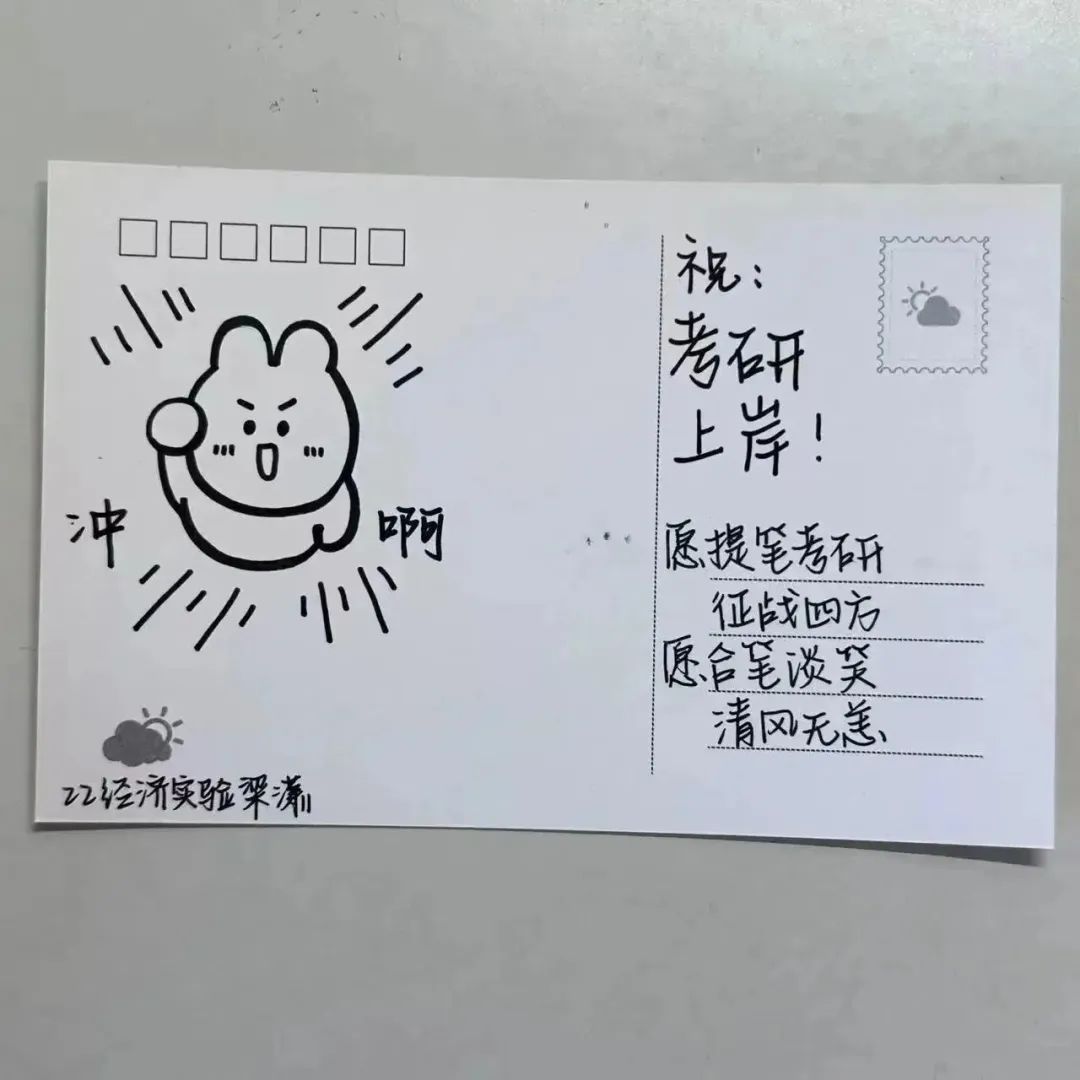 冲 啊
22经济实验梁潇
祝：
考研
上岸！
愿提笔考研
征战四方
愿合笔淡笑
清风无恙